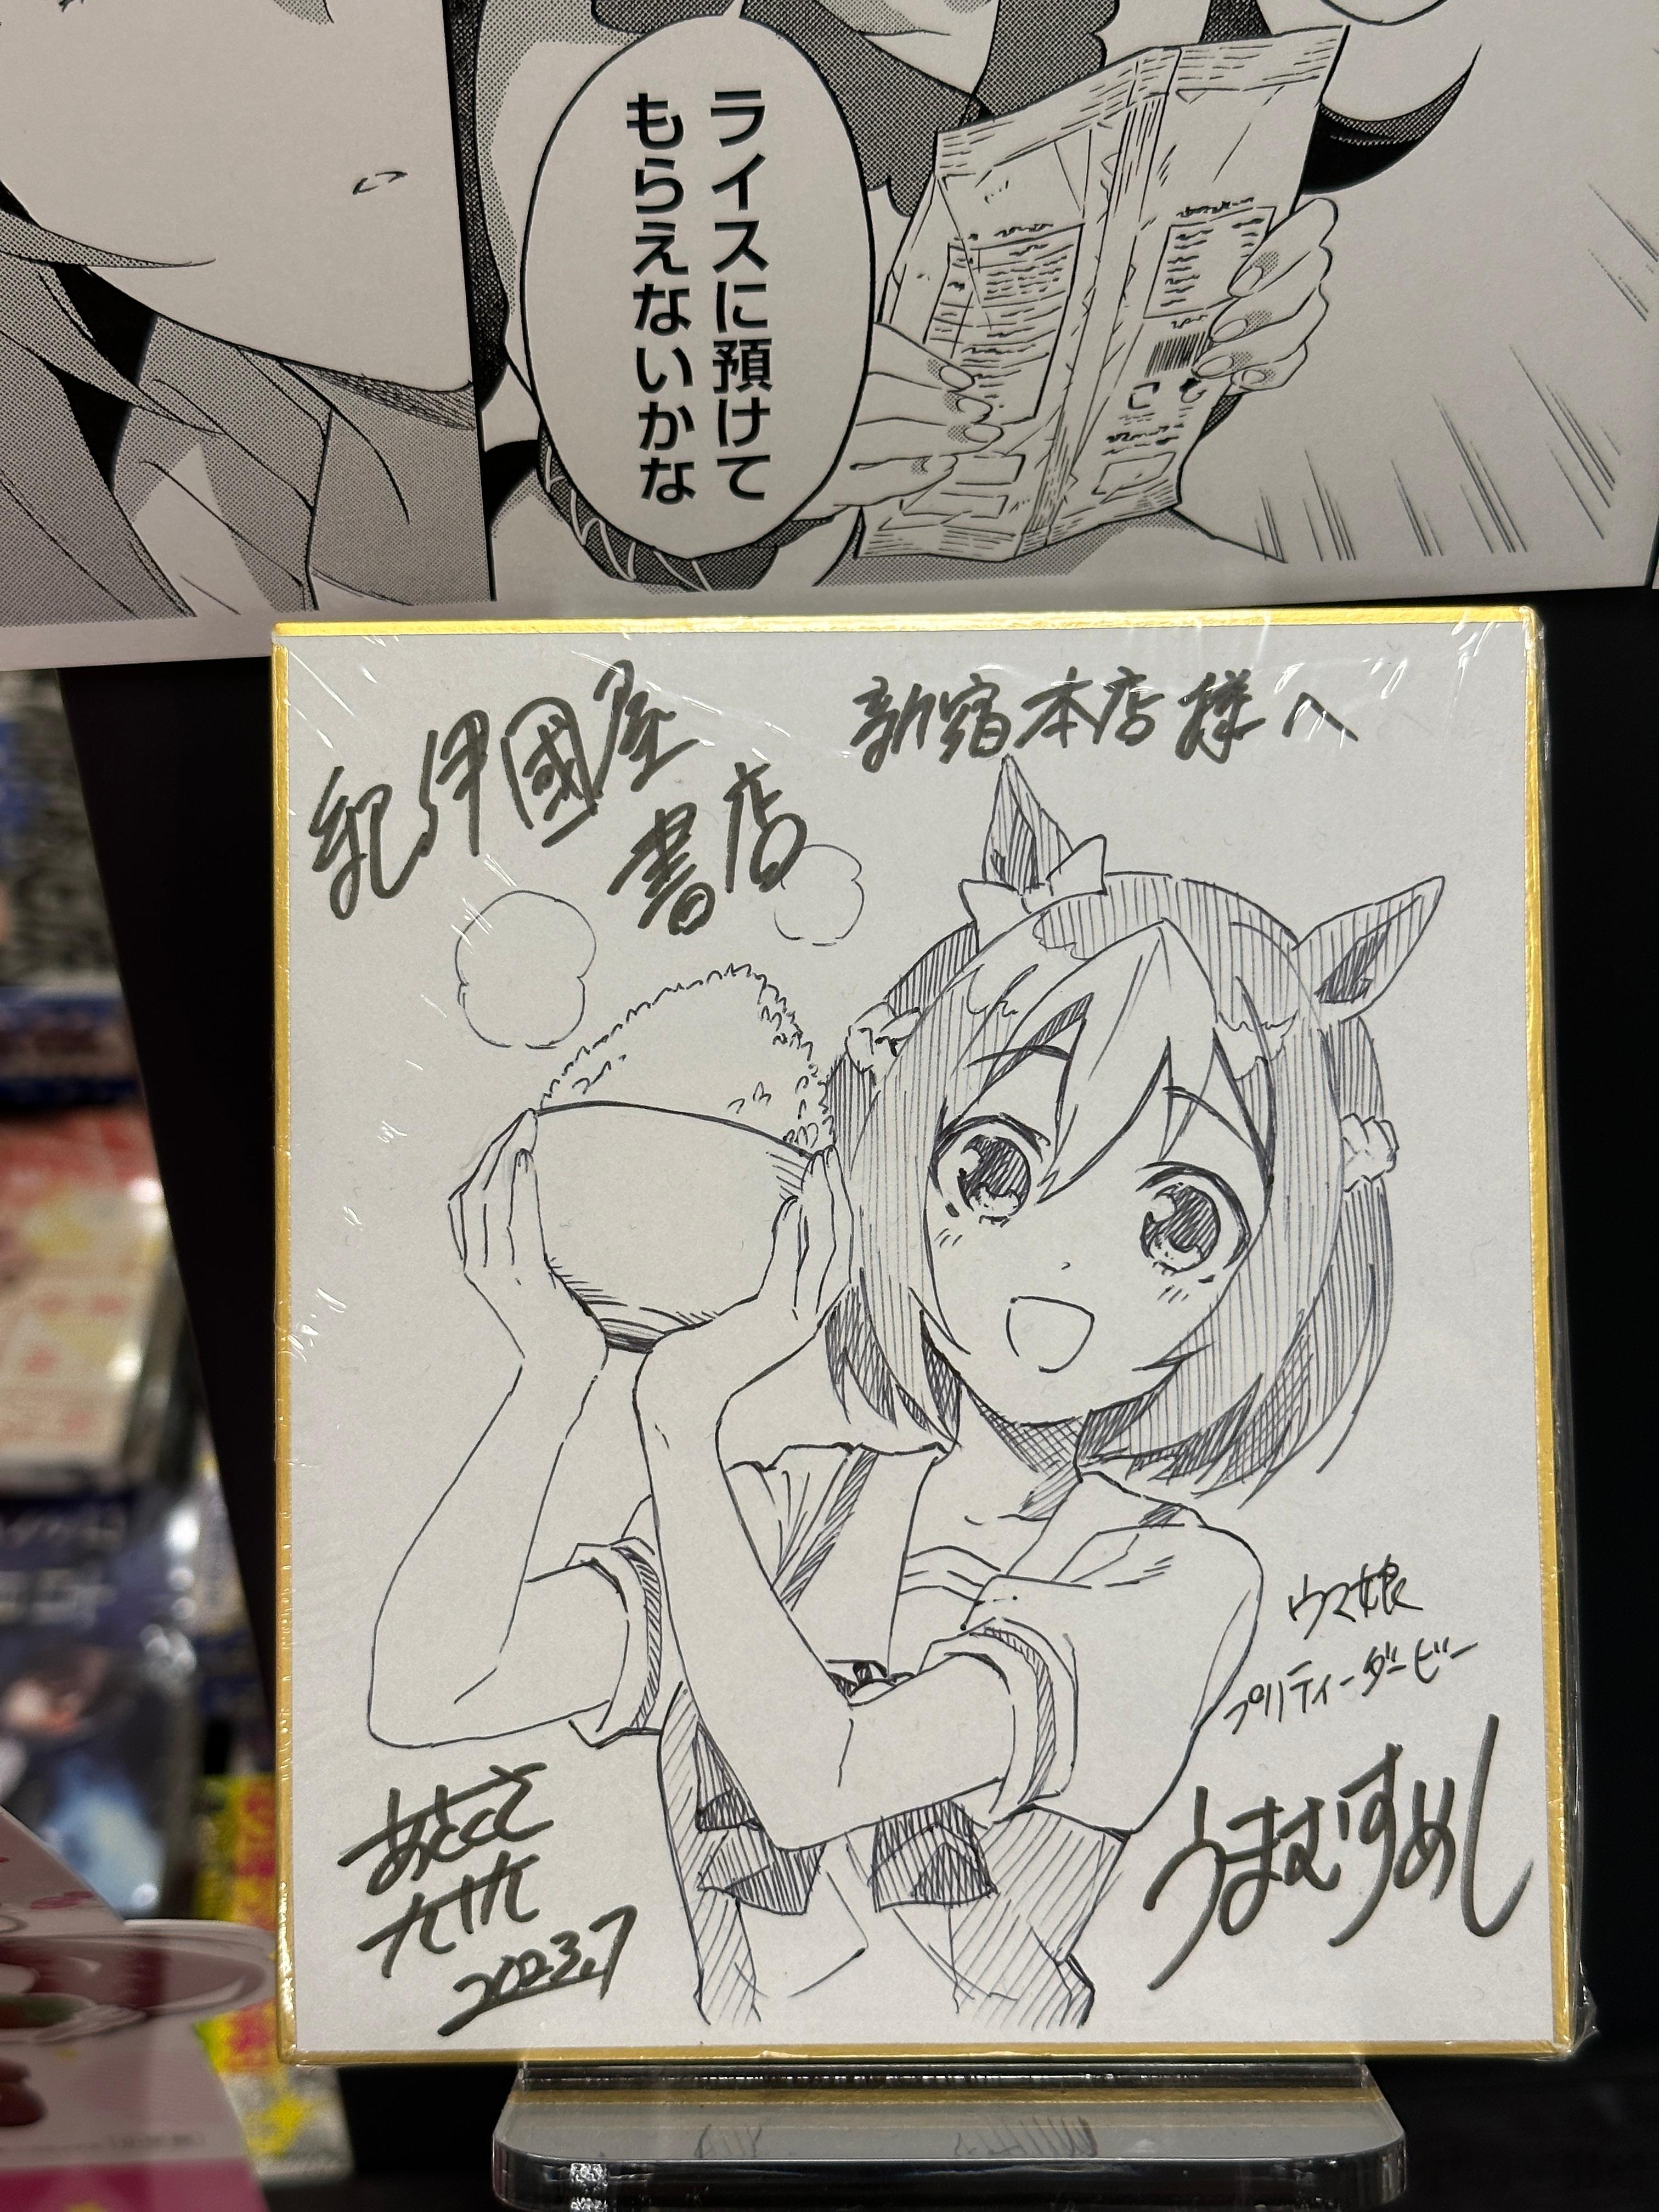 ライスに預けて
もらえないかな
紀伊國屋
書店
新宿本店様へ
ウマ娘
プリティーダービー
うまむすめし
2023.7